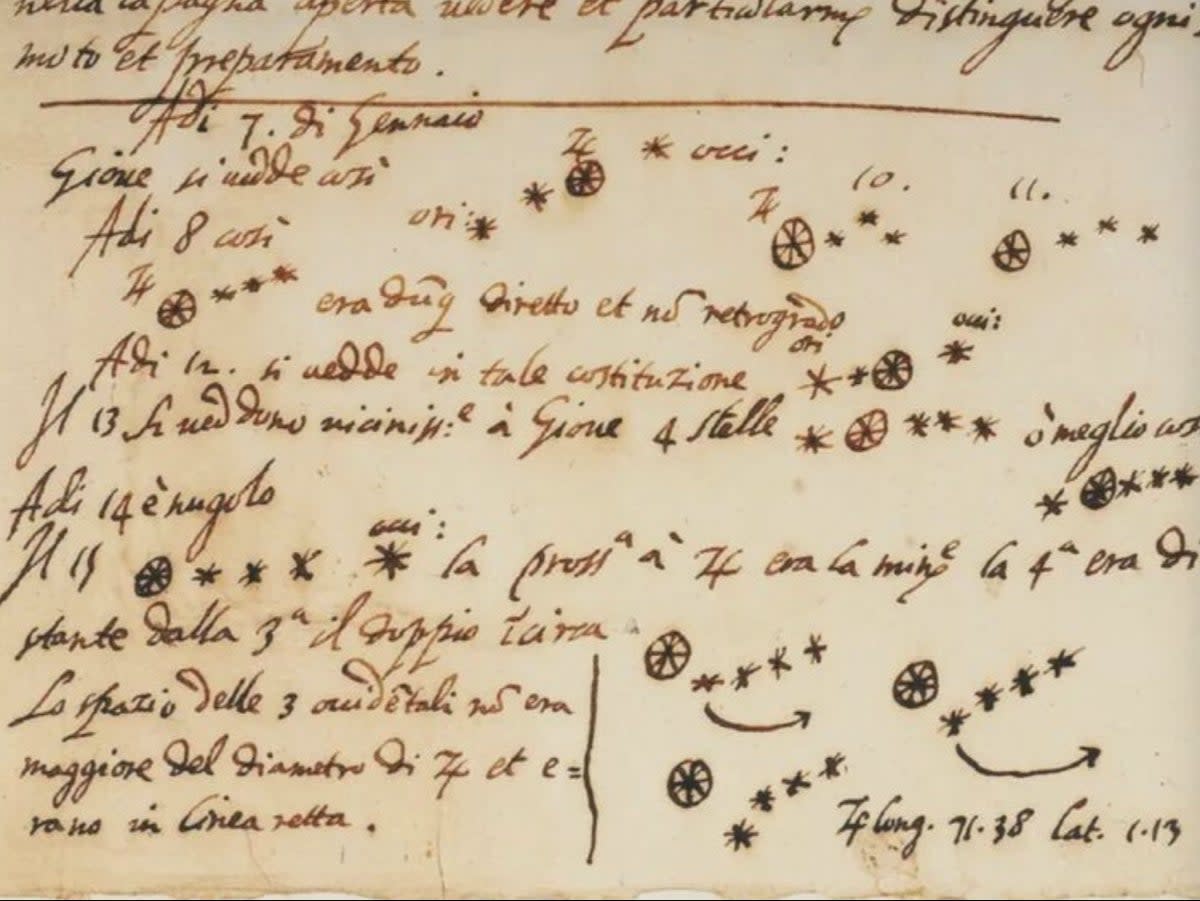 nella capagna aperta uedere et particularm distinguere ogni
moto et preparamento.
Adi 7. di Gennaio
Gioue si uedde così ♃ * occi:
Adi 8 così ori:
♃ 10. 11.
♃ era dūq diretto et nō retrogrado
Adi 12. si uedde in tale costituzione ori occi:
Il 13 si ueddono viciniss:e à Gioue 4 stelle ò meglio così
Adi 14 è nugolo
Il 15 occi: la prossa à ♃ era la mine la 4a era di
stante dalla 3a il doppio ī circa
Lo spazio delle 3 occidētali nō era
maggiore del diametro di ♃ et e=
rano in linea retta.
♃ long. 71.38 lat. 1.13